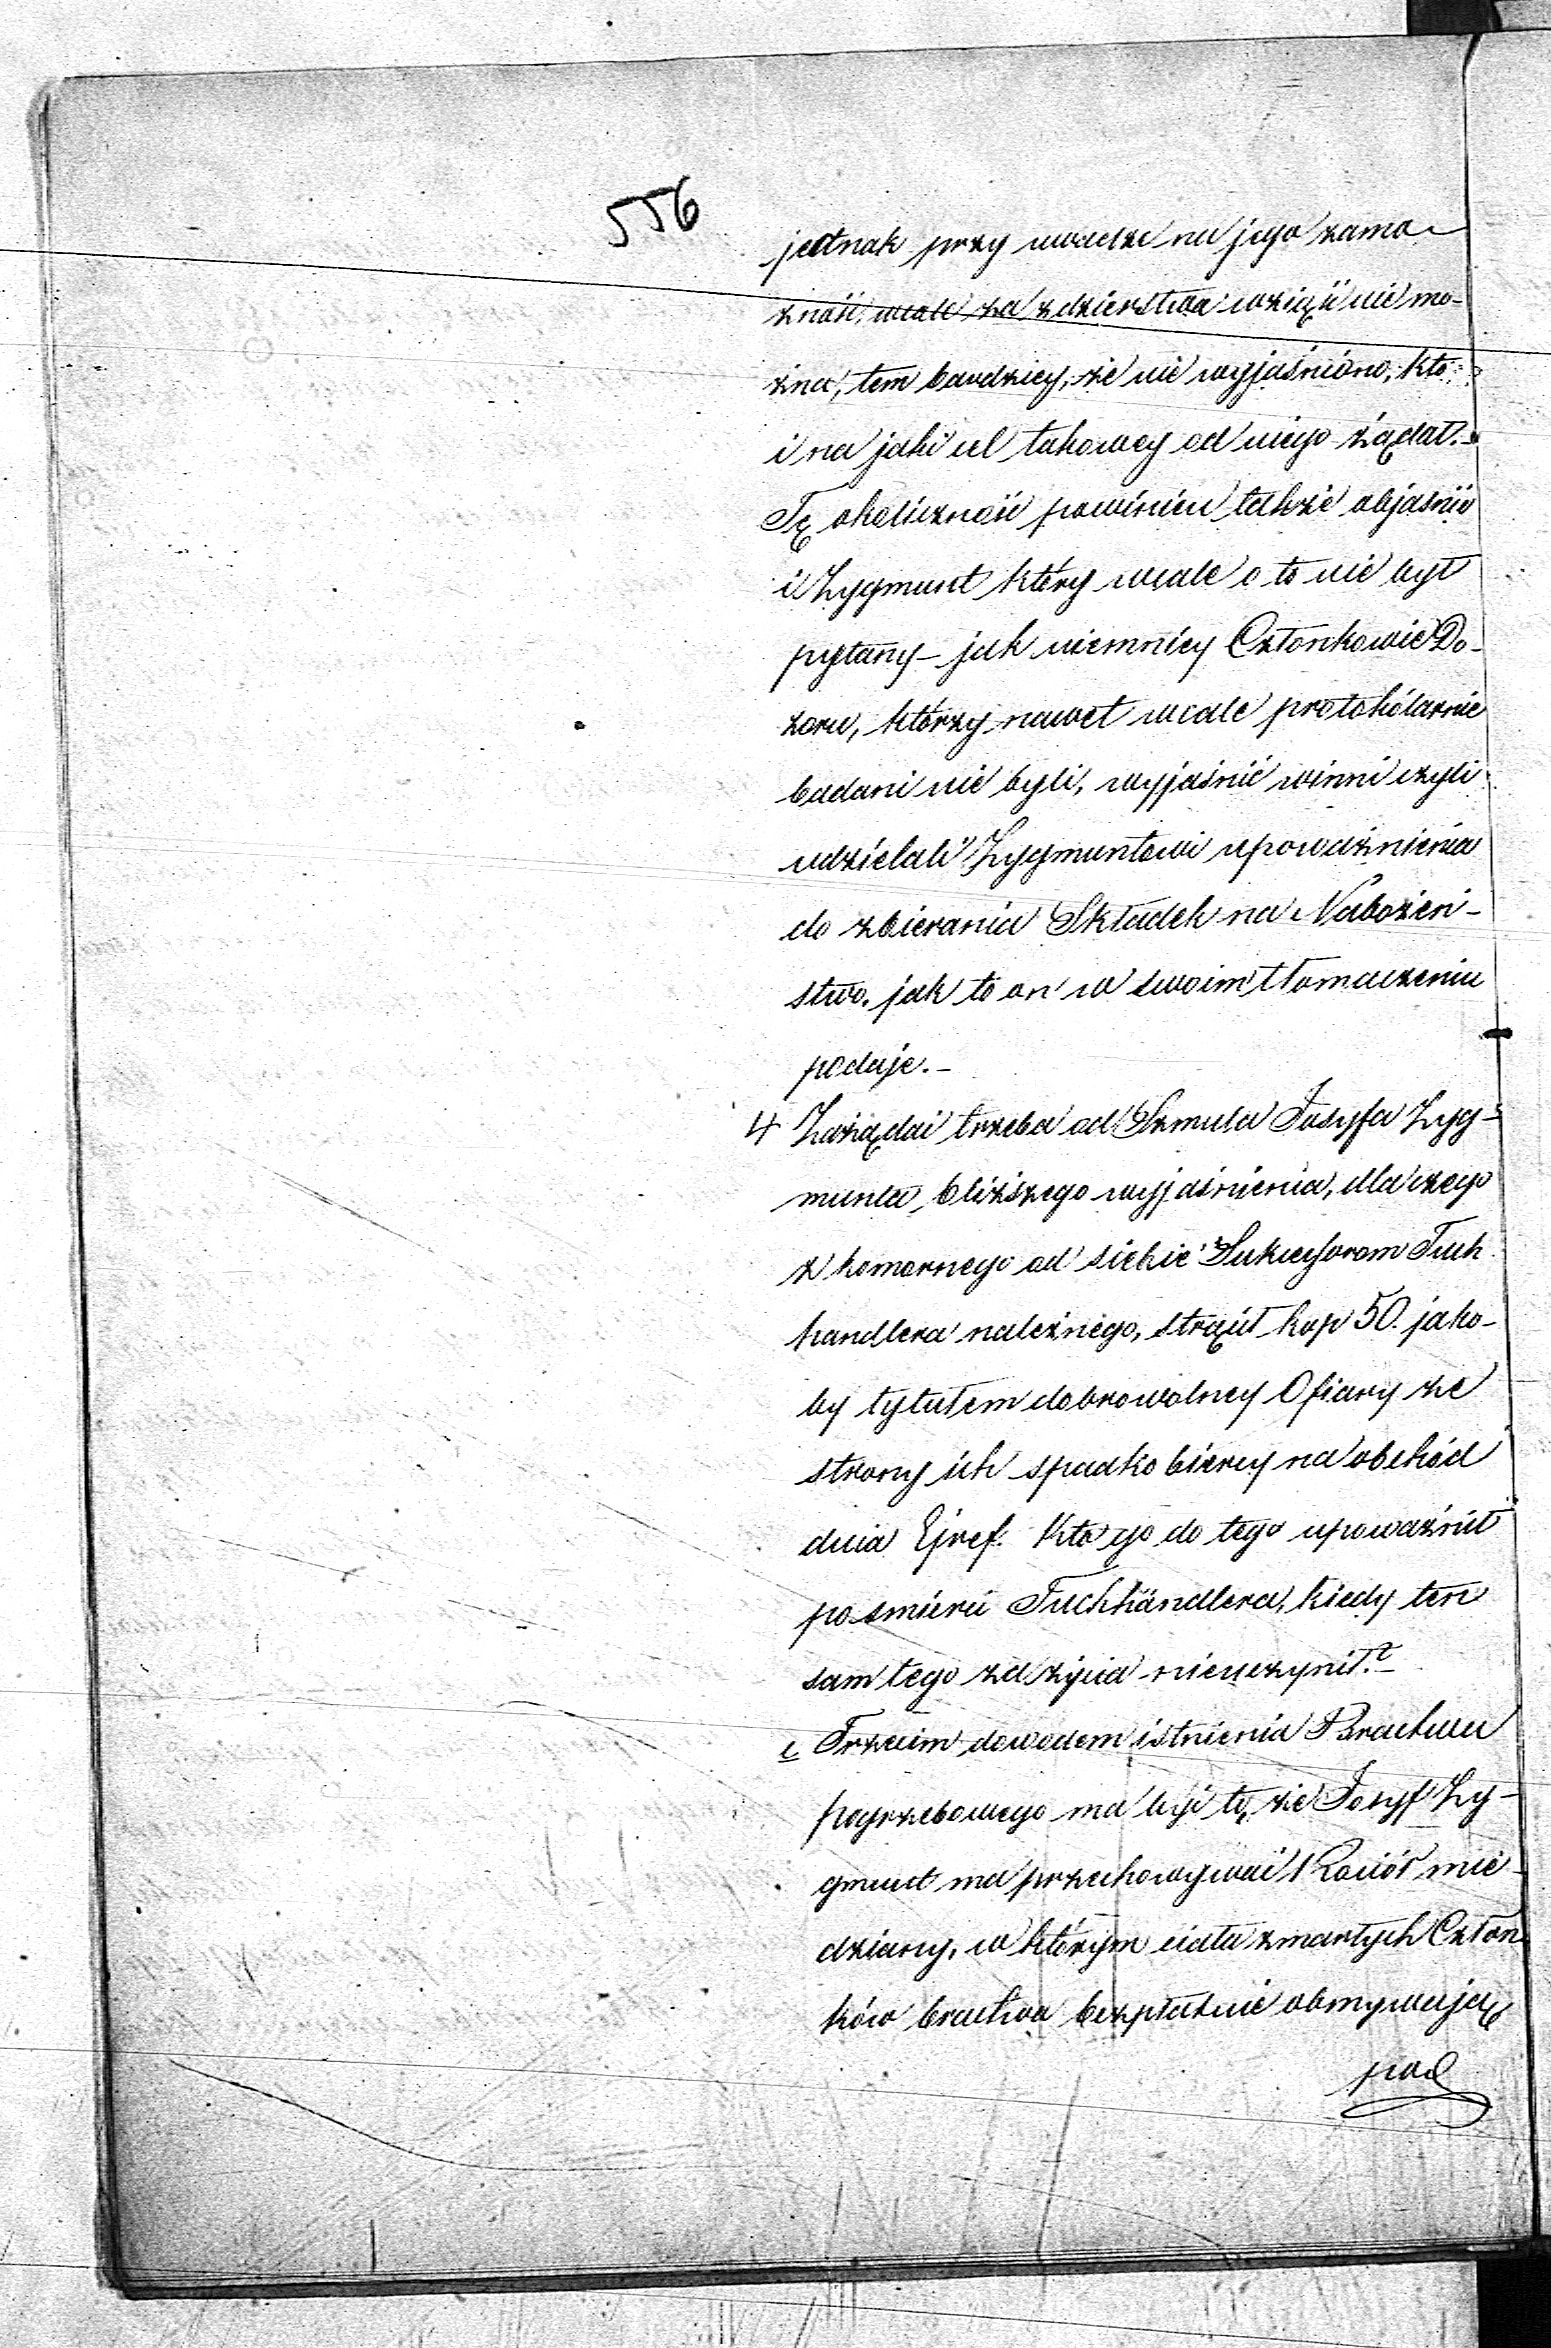 556
jednak przy uwadze na jego zamo-
żność, wcale za zdzierstwo wziąść nie mo-
żna, tem bardziey, że nie wyjaśniono, kto
i na jaki cel takowey od niego żądał.-
Tę okoliczność powinien także objaśnić
i Zygmunt który wcale o to nie był
pytany - jak niemniey Członkowie Do-
zoru, którzy nawet wcale protokólarnie
badani nie byli, wyjaśnić winni czyli
udzielali Zygmuntowi upoważnienia
do zbierania Składek na Nabożeń-
stwo, jak to on w swoim tłomaczeniu
podaje.-
4 Zażądać trzeba od Szmula Josyfa Zyg-
munta, bliższego wyjaśnienia, dla czego
z komornego od siebie Sukcessorom Tuch
handlera należnego, strącił kop 50. jako-
by tytułem dobrowolney Ofiary ze
strony ich spadkobiercy na obchód
dnia Ejref. Kto go do tego upoważnił
po śmierci Tuchhändlera, kiedy ten
sam tego za życia nieuczynił.?-
c Trzecim dowodem istnienia Bractwa
pogrzebowego ma być to, że Josyf Zy-
gmunt ma przechowywać 1 Kocioł mie-
dziany, w którym ciała zmarłych Człon
ków bractwa bezpłatnie obmywają
pod